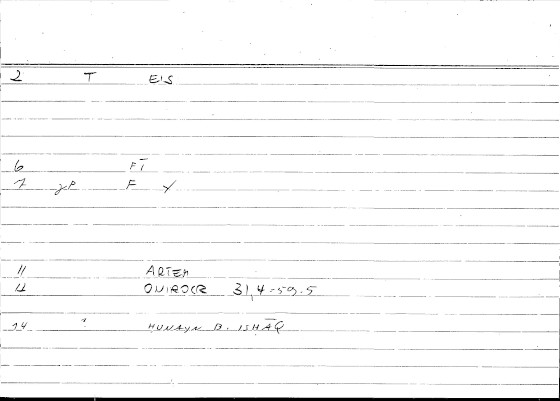 2 T EIS
6 FT
7 γP F Y
11 ARTEM
12 ONIROCR 31,4-59.5
14 1 HUNAYN B. ISHĀQ